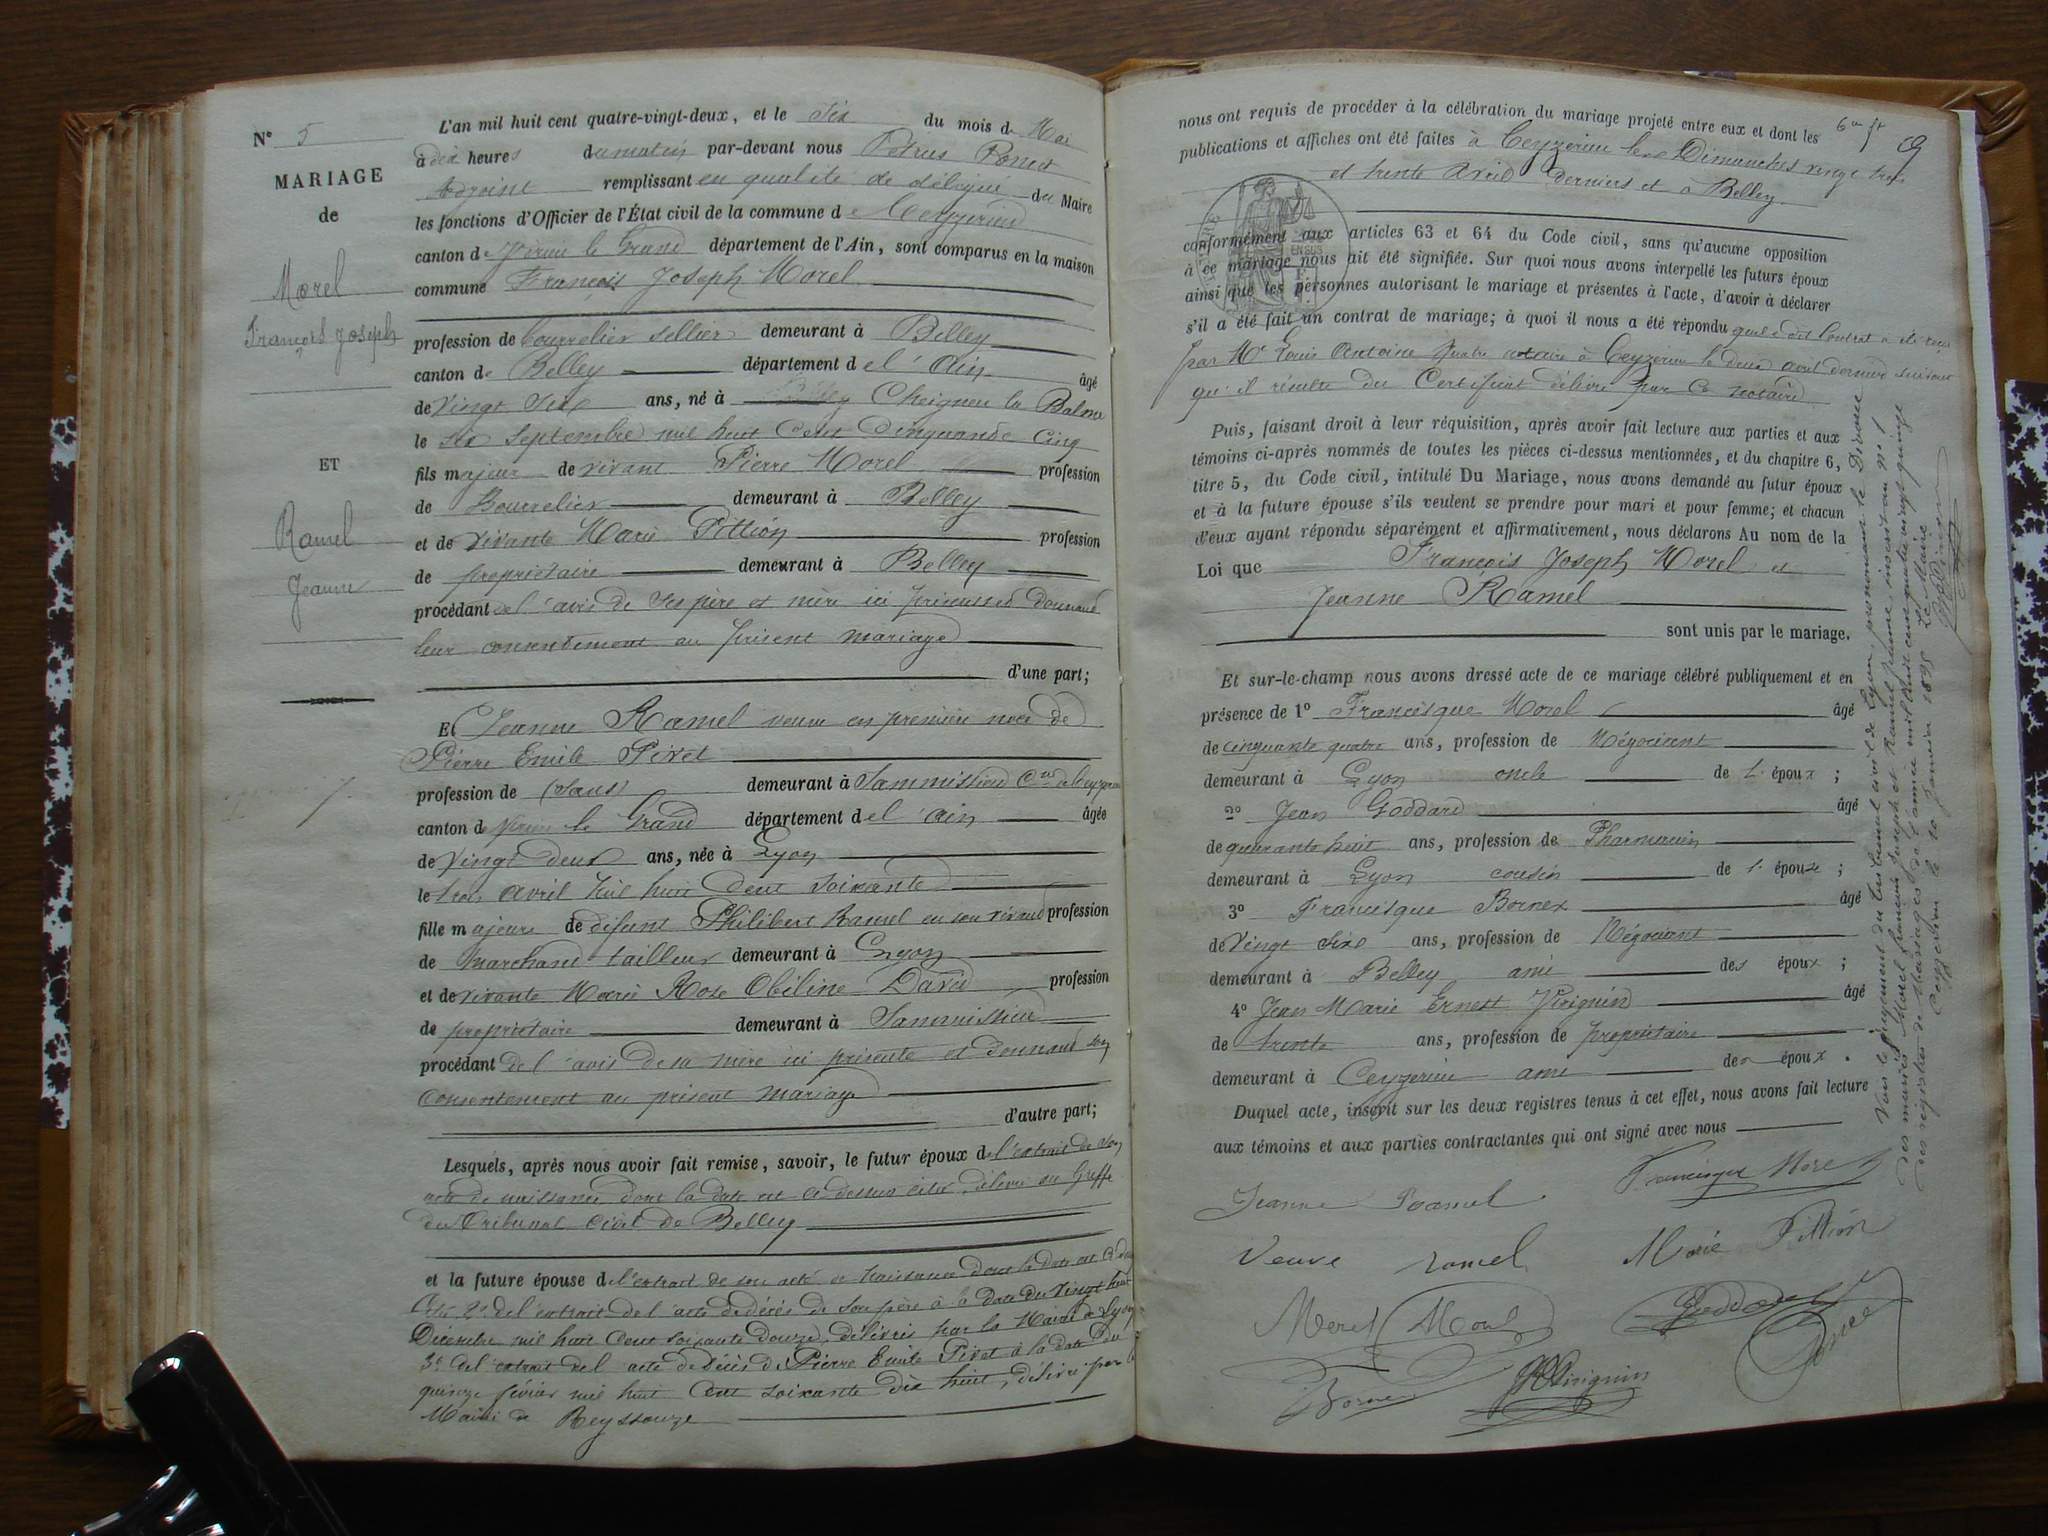 N° 5
MARIAGE
de
Morel
François Joseph
ET
Ramel
Jeanne
L'an mil huit cent quatre-vingt-deux, et le Six du mois de Mai
à dix heures du matin par-devant nous Pétrus Poncet
Adjoint remplissant en qualité de délégué du Maire
les fonctions d'Officier de l'État civil de la commune de Ceyzérieu
canton de Virieu le Grand département de l'Ain, sont comparus en la maison
commune François Joseph Morel
profession de bourrelier sellier demeurant à Belley
canton de Belley département de l'Ain âgé
de Vingt Six ans, né à Cheignieu la Balme
le six Septembre mil huit Cent Cinquante Cinq
fils majeur de vivant Pierre Morel profession
de Bourrelier demeurant à Belley
et de vivante Marie Pittion profession
de propriétaire demeurant à Belley
procédant de l'avis de ses père et mère ici présents et donnant
leur consentement au présent mariage
d'une part;
Et Jeanne Ramel veuve en première noce de
Pierre Emile Pivet
profession de (Sans) demeurant à Sammissieu Cne de Ceyzérieu
canton de Virieu le Grand département de l'Ain âgée
de Vingt deux ans, née à Lyon
le trois avril mil huit Cent soixante
fille majeure de défunt Philibert Ramel en son vivant profession
de marchand tailleur demeurant à Lyon
et de vivante Marie Rose Obéline David profession
de propriétaire demeurant à Sammissieu
procédant de l'avis de sa mère ici présente et donnant son
Consentement au présent mariage
d'autre part;
Lesquels, après nous avoir fait remise, savoir, le futur époux de l'extrait de son
acte de naissance dont la date est ci dessus citée, délivré au Greffe
du Tribunal Civil de Belley
et la future épouse de l'extrait de son acte de naissance dont la date est ci dessus
citée 2° de l'extrait de l'acte de décès de son père à la date du Vingt huit
Décembre mil huit Cent soixante douze, délivrés par la Mairie de Lyon
3° de l'extrait de l'acte de décès de Pierre Emile Pivet à la date du
quinze février mil huit Cent soixante dix huit, délivré par la
Mairie de Reyssouze
nous ont requis de procéder à la célébration du mariage projeté entre eux et dont les
publications et affiches ont été faites à Ceyzérieu les Dimanches vingt trois
et trente Avril derniers et à Belley
conformément aux articles 63 et 64 du Code civil, sans qu'aucune opposition
à ce mariage nous ait été signifiée. Sur quoi nous avons interpellé les futurs époux
ainsi que les personnes autorisant le mariage et présentes à l'acte, d'avoir à déclarer
s'il a été fait un contrat de mariage; à quoi il nous a été répondu que le dit Contrat a été reçu
par Me Louis Antoine notaire à Ceyzérieu le deux avril dernier suivant
qu'il résulte du Certificat délivré par Ce notaire
Puis, faisant droit à leur réquisition, après avoir fait lecture aux parties et aux
témoins ci-après nommés de toutes les pièces ci-dessus mentionnées, et du chapitre 6,
titre 5, du Code civil, intitulé Du Mariage, nous avons demandé au futur époux
et à la future épouse s'ils veulent se prendre pour mari et pour femme; et chacun
d'eux ayant répondu séparément et affirmativement, nous déclarons Au nom de la
Loi que François Joseph Morel et
Jeanne Ramel
sont unis par le mariage.
Et sur-le-champ nous avons dressé acte de ce mariage célébré publiquement et en
présence de 1° Francisque Morel âgé
de cinquante quatre ans, profession de Négociant
demeurant à Lyon oncle de l' époux;
2° Jean Goddard âgé
de quarante huit ans, profession de Pharmacien
demeurant à Lyon cousin de l' épouse;
3° Francisque Bornex âgé
de Vingt Six ans, profession de Négociant
demeurant à Belley ami des époux;
4° Jean Marie Ernest Virignin âgé
de trente ans, profession de propriétaire
demeurant à Ceyzérieu ami des époux.
Duquel acte, inscrit sur les deux registres tenus à cet effet, nous avons fait lecture
aux témoins et aux parties contractantes qui ont signé avec nous
Jeanne Ramel
Francisque Morel
Veuve Ramel
Marie Pittion
Morel
Morel
Goddard
Poncet
Bornex
Virignin
Par jugement du tribunal civil de Lyon, prononçant le Divorce
des mariés Morel François Joseph et Ramel Jeanne, inscrit au n° 1
des registres de Mariages de l'année mil huit cent quatre vingt quinze
Ceyzérieu le 10 Janvier 1895 Le Maire